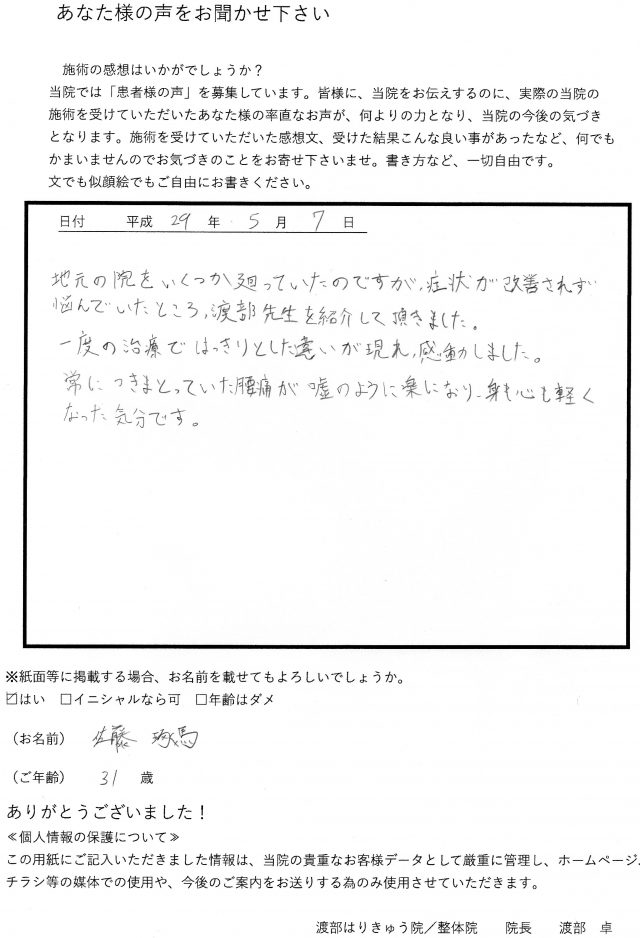 あなた様の声をお聞かせ下さい
施術の感想はいかがでしょうか？
当院では「患者様の声」を募集しています。皆様に、当院をお伝えするのに、実際の当院の
施術を受けていただいたあなた様の率直なお声が、何よりの力となり、当院の今後の気づき
となります。施術を受けていただいた感想文、受けた結果こんな良い事があったなど、何でも
かまいませんのでお気づきのことをお寄せ下さいませ。書き方など、一切自由です。
文でも似顔絵でもご自由にお書きください。
日付 平成 29 年 5 月 7 日
地元の院をいくつか廻っていたのですが、症状が改善されず
悩んでいたところ、渡部先生を紹介して頂きました。
一度の治療ではっきりとした違いが現れ、感動しました。
常につきまとっていた腰痛が嘘のように楽になり、身も心も軽く
なった気分です。
※紙面等に掲載する場合、お名前を載せてもよろしいでしょうか。
☑はい □イニシャルなら可 □年齢はダメ
（お名前） 佐藤 琢馬
（ご年齢） 31 歳
ありがとうございました！
≪個人情報の保護について≫
この用紙にご記入いただきました情報は、当院の貴重なお客様データとして厳重に管理し、ホームページ、
チラシ等の媒体での使用や、今後のご案内をお送りする為のみ使用させていただきます。
渡部はりきゅう院／整体院 院長 渡部 卓